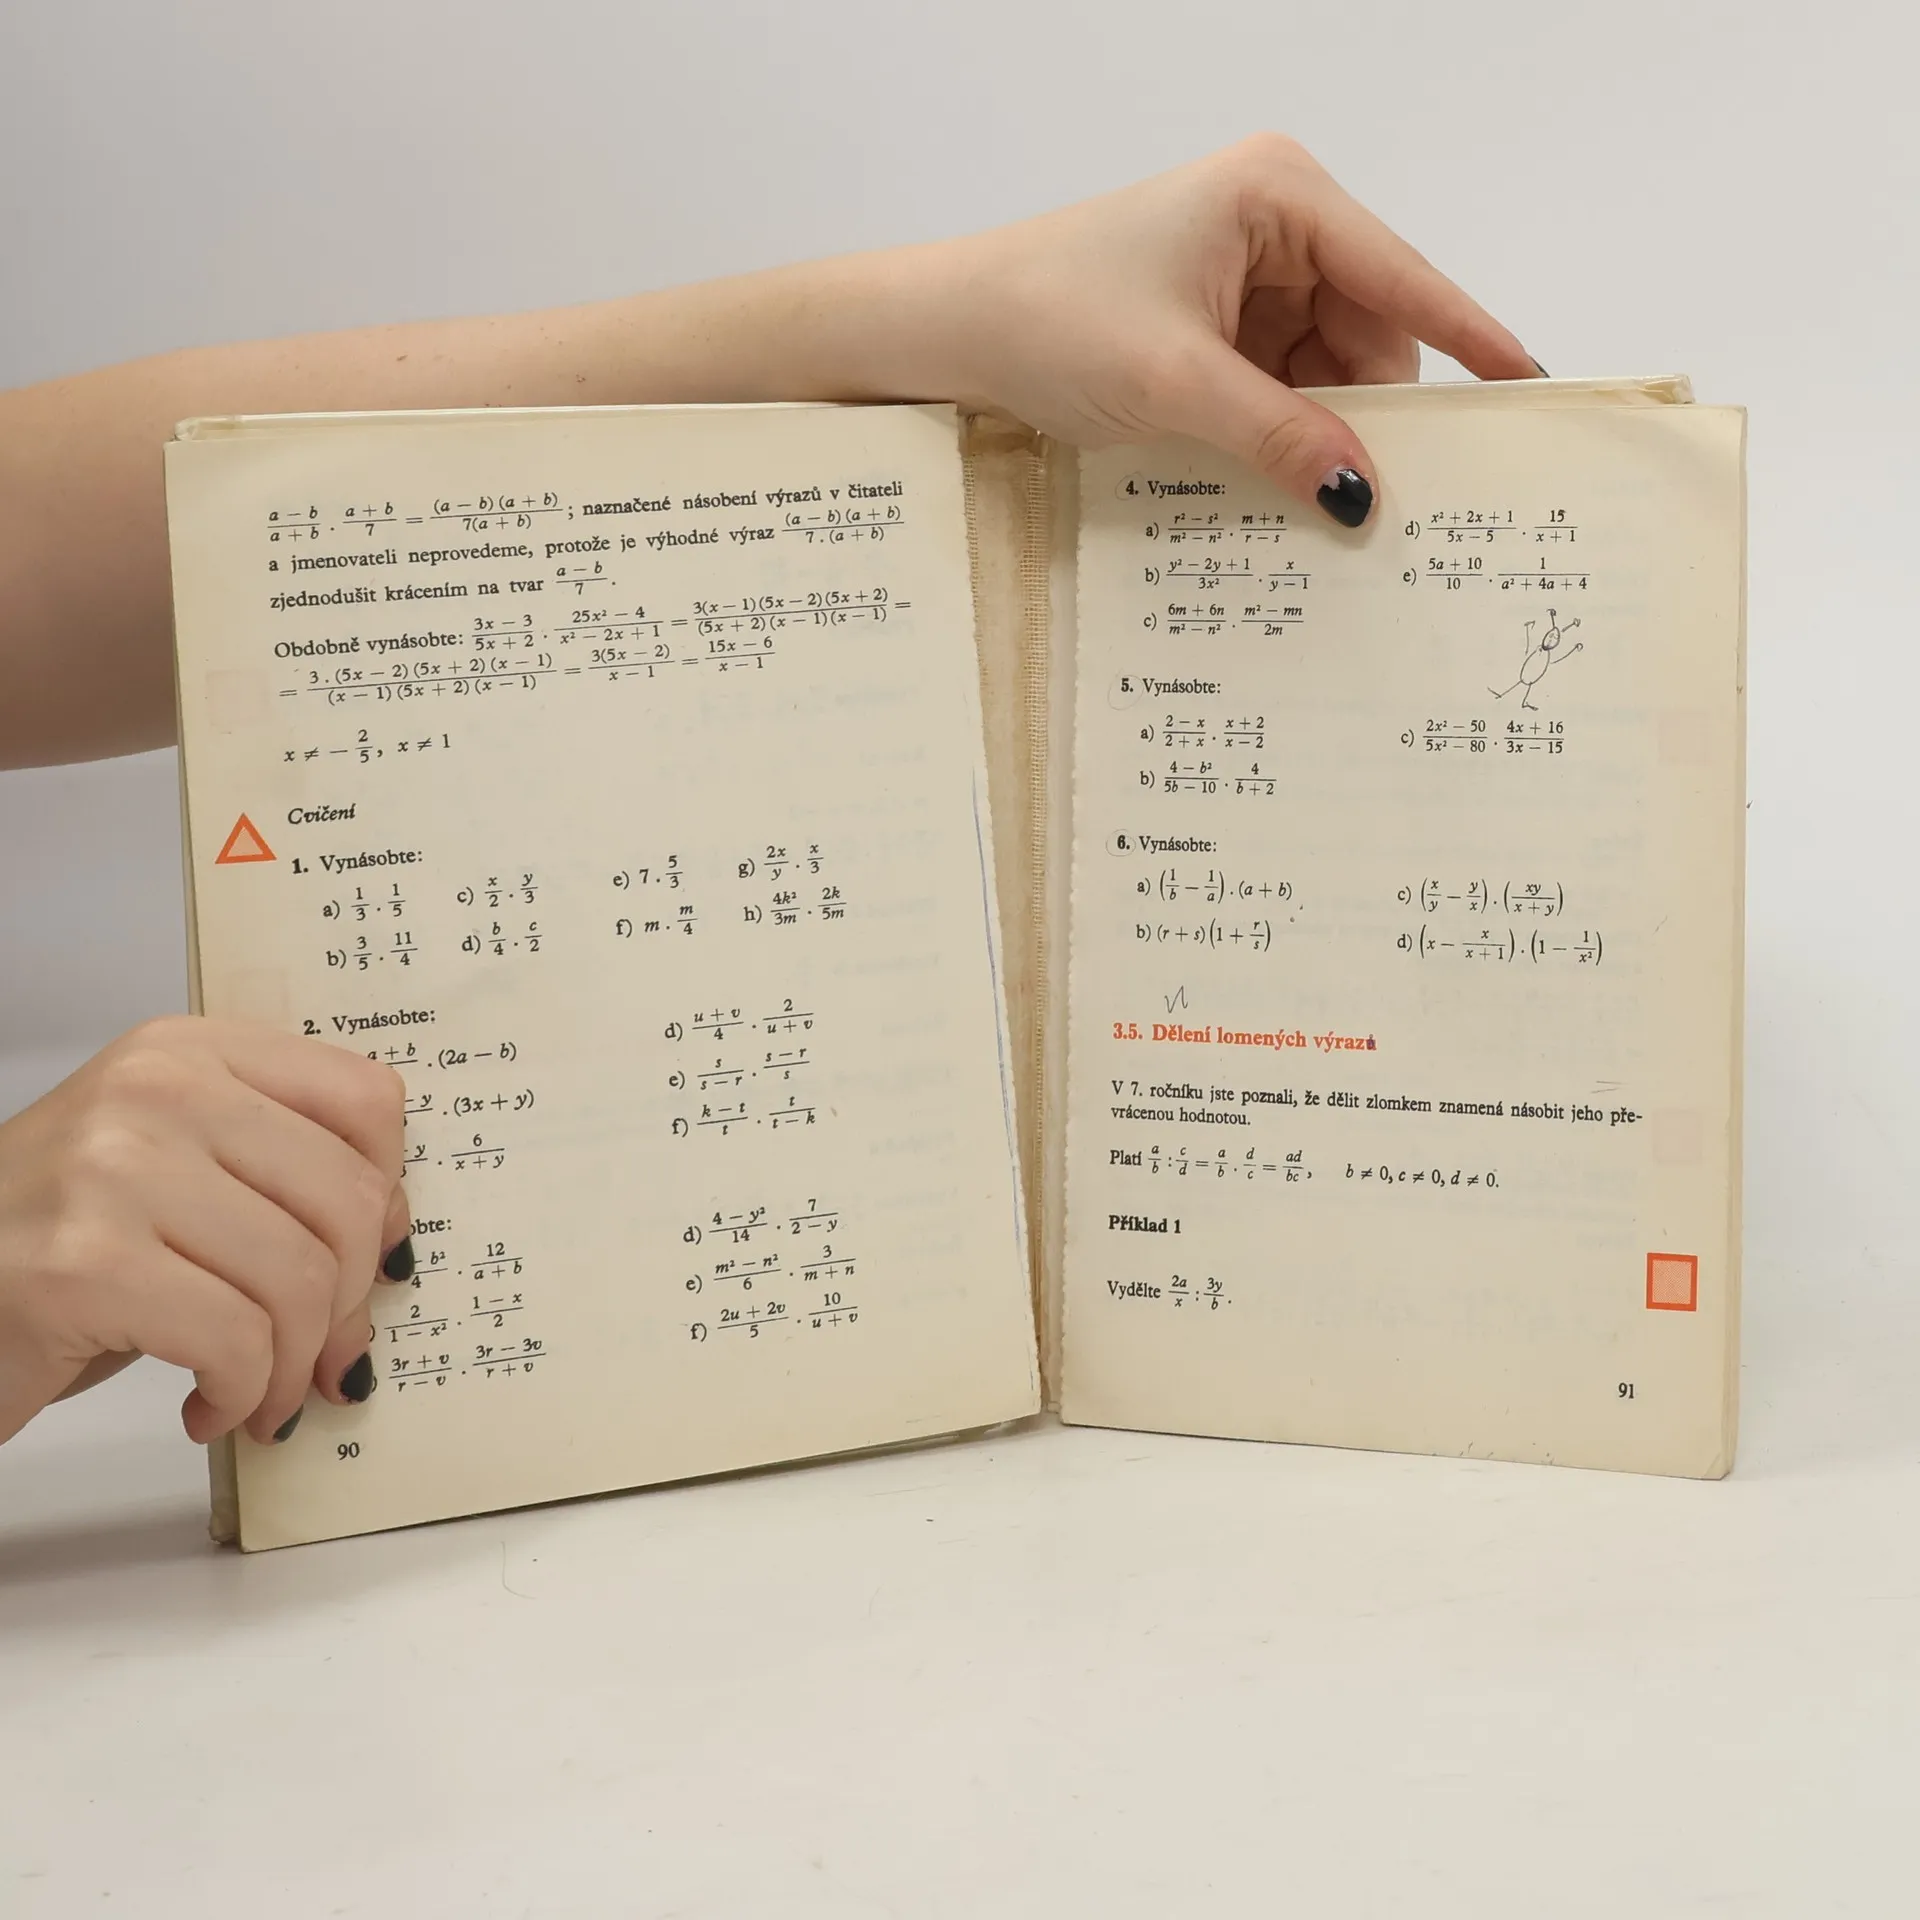 a − b / a + b . a + b / 7 = (a − b) (a + b) / 7(a + b) ; naznačené násobení výrazů v čitateli
a jmenovateli neprovedeme, protože je výhodné výraz (a − b) (a + b) / 7 . (a + b)
zjednodušit krácením na tvar a − b / 7 .
Obdobně vynásobte: 3x − 3 / 5x + 2 . 25x² − 4 / x² − 2x + 1 = 3(x − 1) (5x − 2) (5x + 2) / (5x + 2) (x − 1) (x − 1) =
= 3 . (5x − 2) (5x + 2) (x − 1) / (x − 1) (5x + 2) (x − 1) = 3(5x − 2) / x − 1 = 15x − 6 / x − 1
x ≠ − 2/5, x ≠ 1
Cvičení
1. Vynásobte:
a) 1/3 . 1/5
b) 3/5 . 11/4
c) x/2 . y/3
d) b/4 . c/2
e) 7 . 5/3
f) m . m/4
g) 2x/y . x/3
h) 4k²/3m . 2k/5m
2. Vynásobte:
a + b . (2a − b)
− y . (3x + y)
y . 6 / x + y
d) u + v / 4 . 2 / u + v
e) s / s − r . s − r / s
f) k − t / t . t / t − k
obte:
− b² / 4 . 12 / a + b
) 2 / 1 − x² . 1 − x / 2
) 3r + v / r − v . 3r − 3v / r + v
d) 4 − y² / 14 . 7 / 2 − y
e) m² − n² / 6 . 3 / m + n
f) 2u + 2v / 5 . 10 / u + v
90
4. Vynásobte:
a) r² − s² / m² − n² . m + n / r − s
b) y² − 2y + 1 / 3x² . x / y − 1
c) 6m + 6n / m² − n² . m² − mn / 2m
d) x² + 2x + 1 / 5x − 5 . 15 / x + 1
e) 5a + 10 / 10 . 1 / a² + 4a + 4
5. Vynásobte:
a) 2 − x / 2 + x . x + 2 / x − 2
b) 4 − b² / 5b − 10 . 4 / b + 2
c) 2x² − 50 / 5x² − 80 . 4x + 16 / 3x − 15
6. Vynásobte:
a) (1/b − 1/a) . (a + b)
b) (r + s) (1 + r/s)
c) (x/y − y/x) . (xy / x + y)
d) (x − x / x + 1) . (1 − 1/x²)
3.5. Dělení lomených výrazů
V 7. ročníku jste poznali, že dělit zlomkem znamená násobit jeho pře-
vrácenou hodnotou.
Platí a/b : c/d = a/b . d/c = ad/bc, b ≠ 0, c ≠ 0, d ≠ 0.
Příklad 1
Vydělte 2a/x : 3y/b .
91